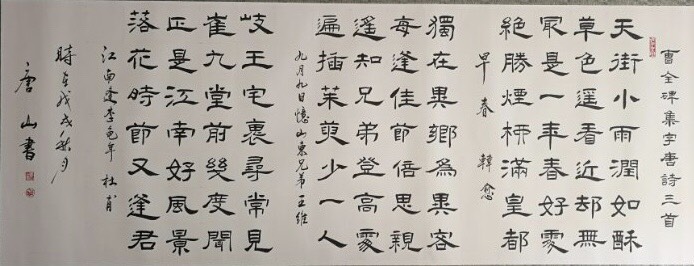 曹全碑集字唐詩三首
天街小雨潤如酥
草色遥看近却無
最是一年春好處
絕勝煙柳滿皇都
早春 韓愈
獨在異鄉為異客
每逢佳節倍思親
遥知兄弟登高處
遍插茱萸少一人
九月九日憶山東兄弟 王維
岐王宅裏尋常見
崔九堂前幾度聞
正是江南好風景
落花時節又逢君
江南逢李龜年 杜甫
時在戊戌秋月
唐山書